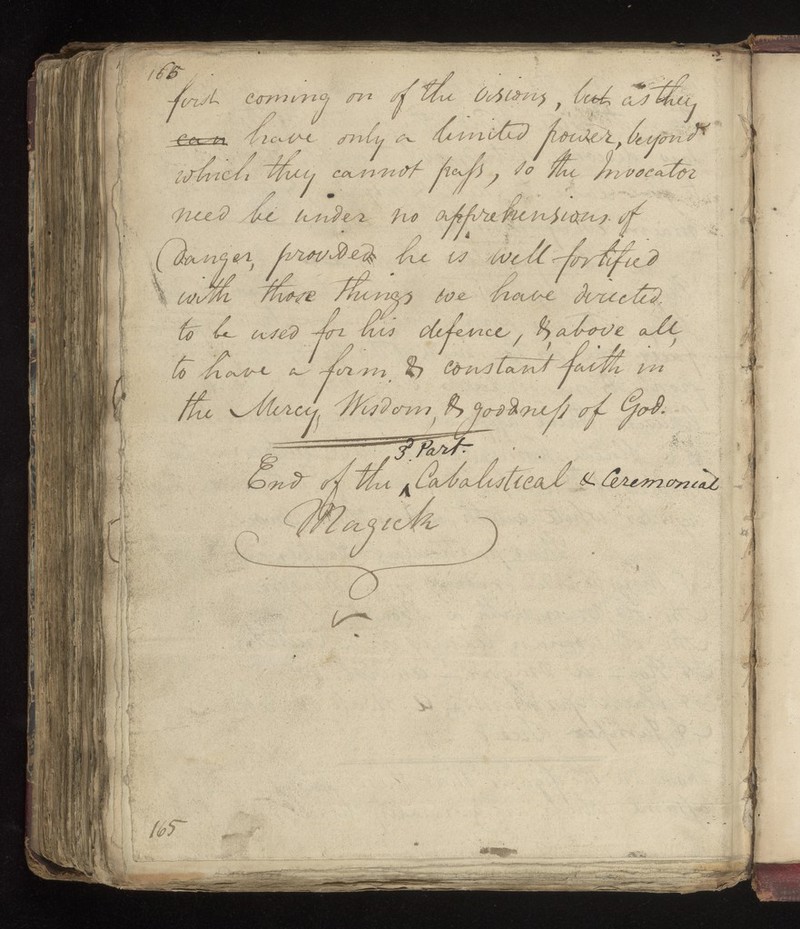 165
first coming on of the visions, but as they
can have only a limited power, beyond
which they cannot pass, so the Invocator
need be under no apprehensions of
Danger, provided he is well fortified
with those things we have directed
to be used for his defence, & above all,
to have a firm & constant faith in
the Mercy, Wisdom, & goodness of God.
3d. Part.
End of the ^ Cabalistical & Ceremonial
Magick
165